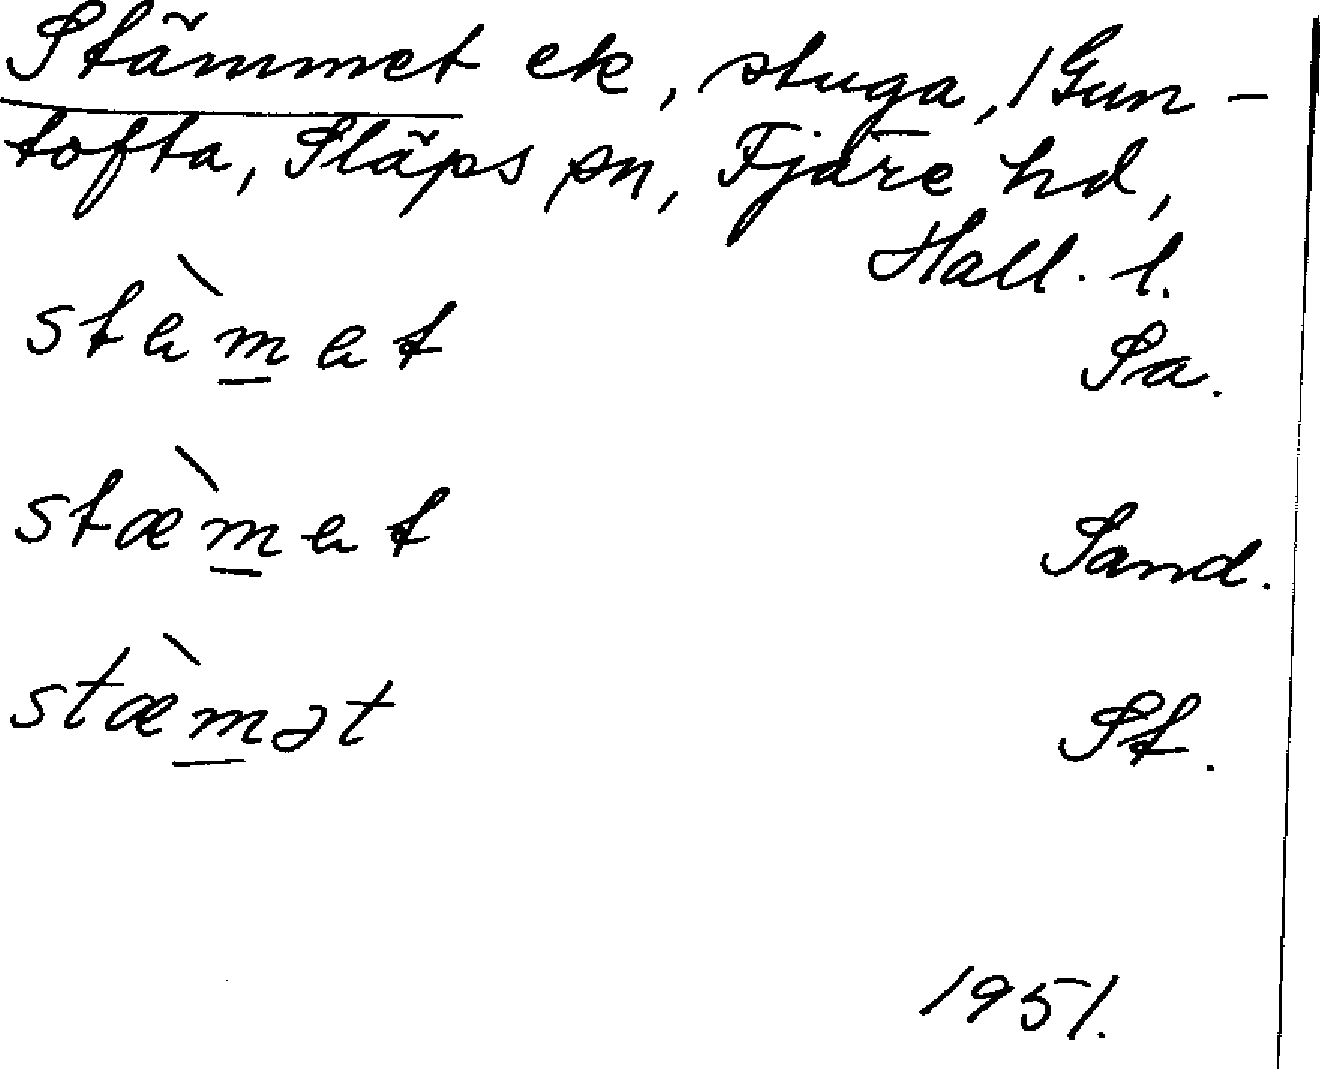 Stämmet ek, stuga, 1 Gun-
tofta, Släps sn, Fjäre hd,
Hall. l.
stæ̀m̲et Sa.
stæ̀m̲et Sand.
stæ̀m̲ət St.
1951.